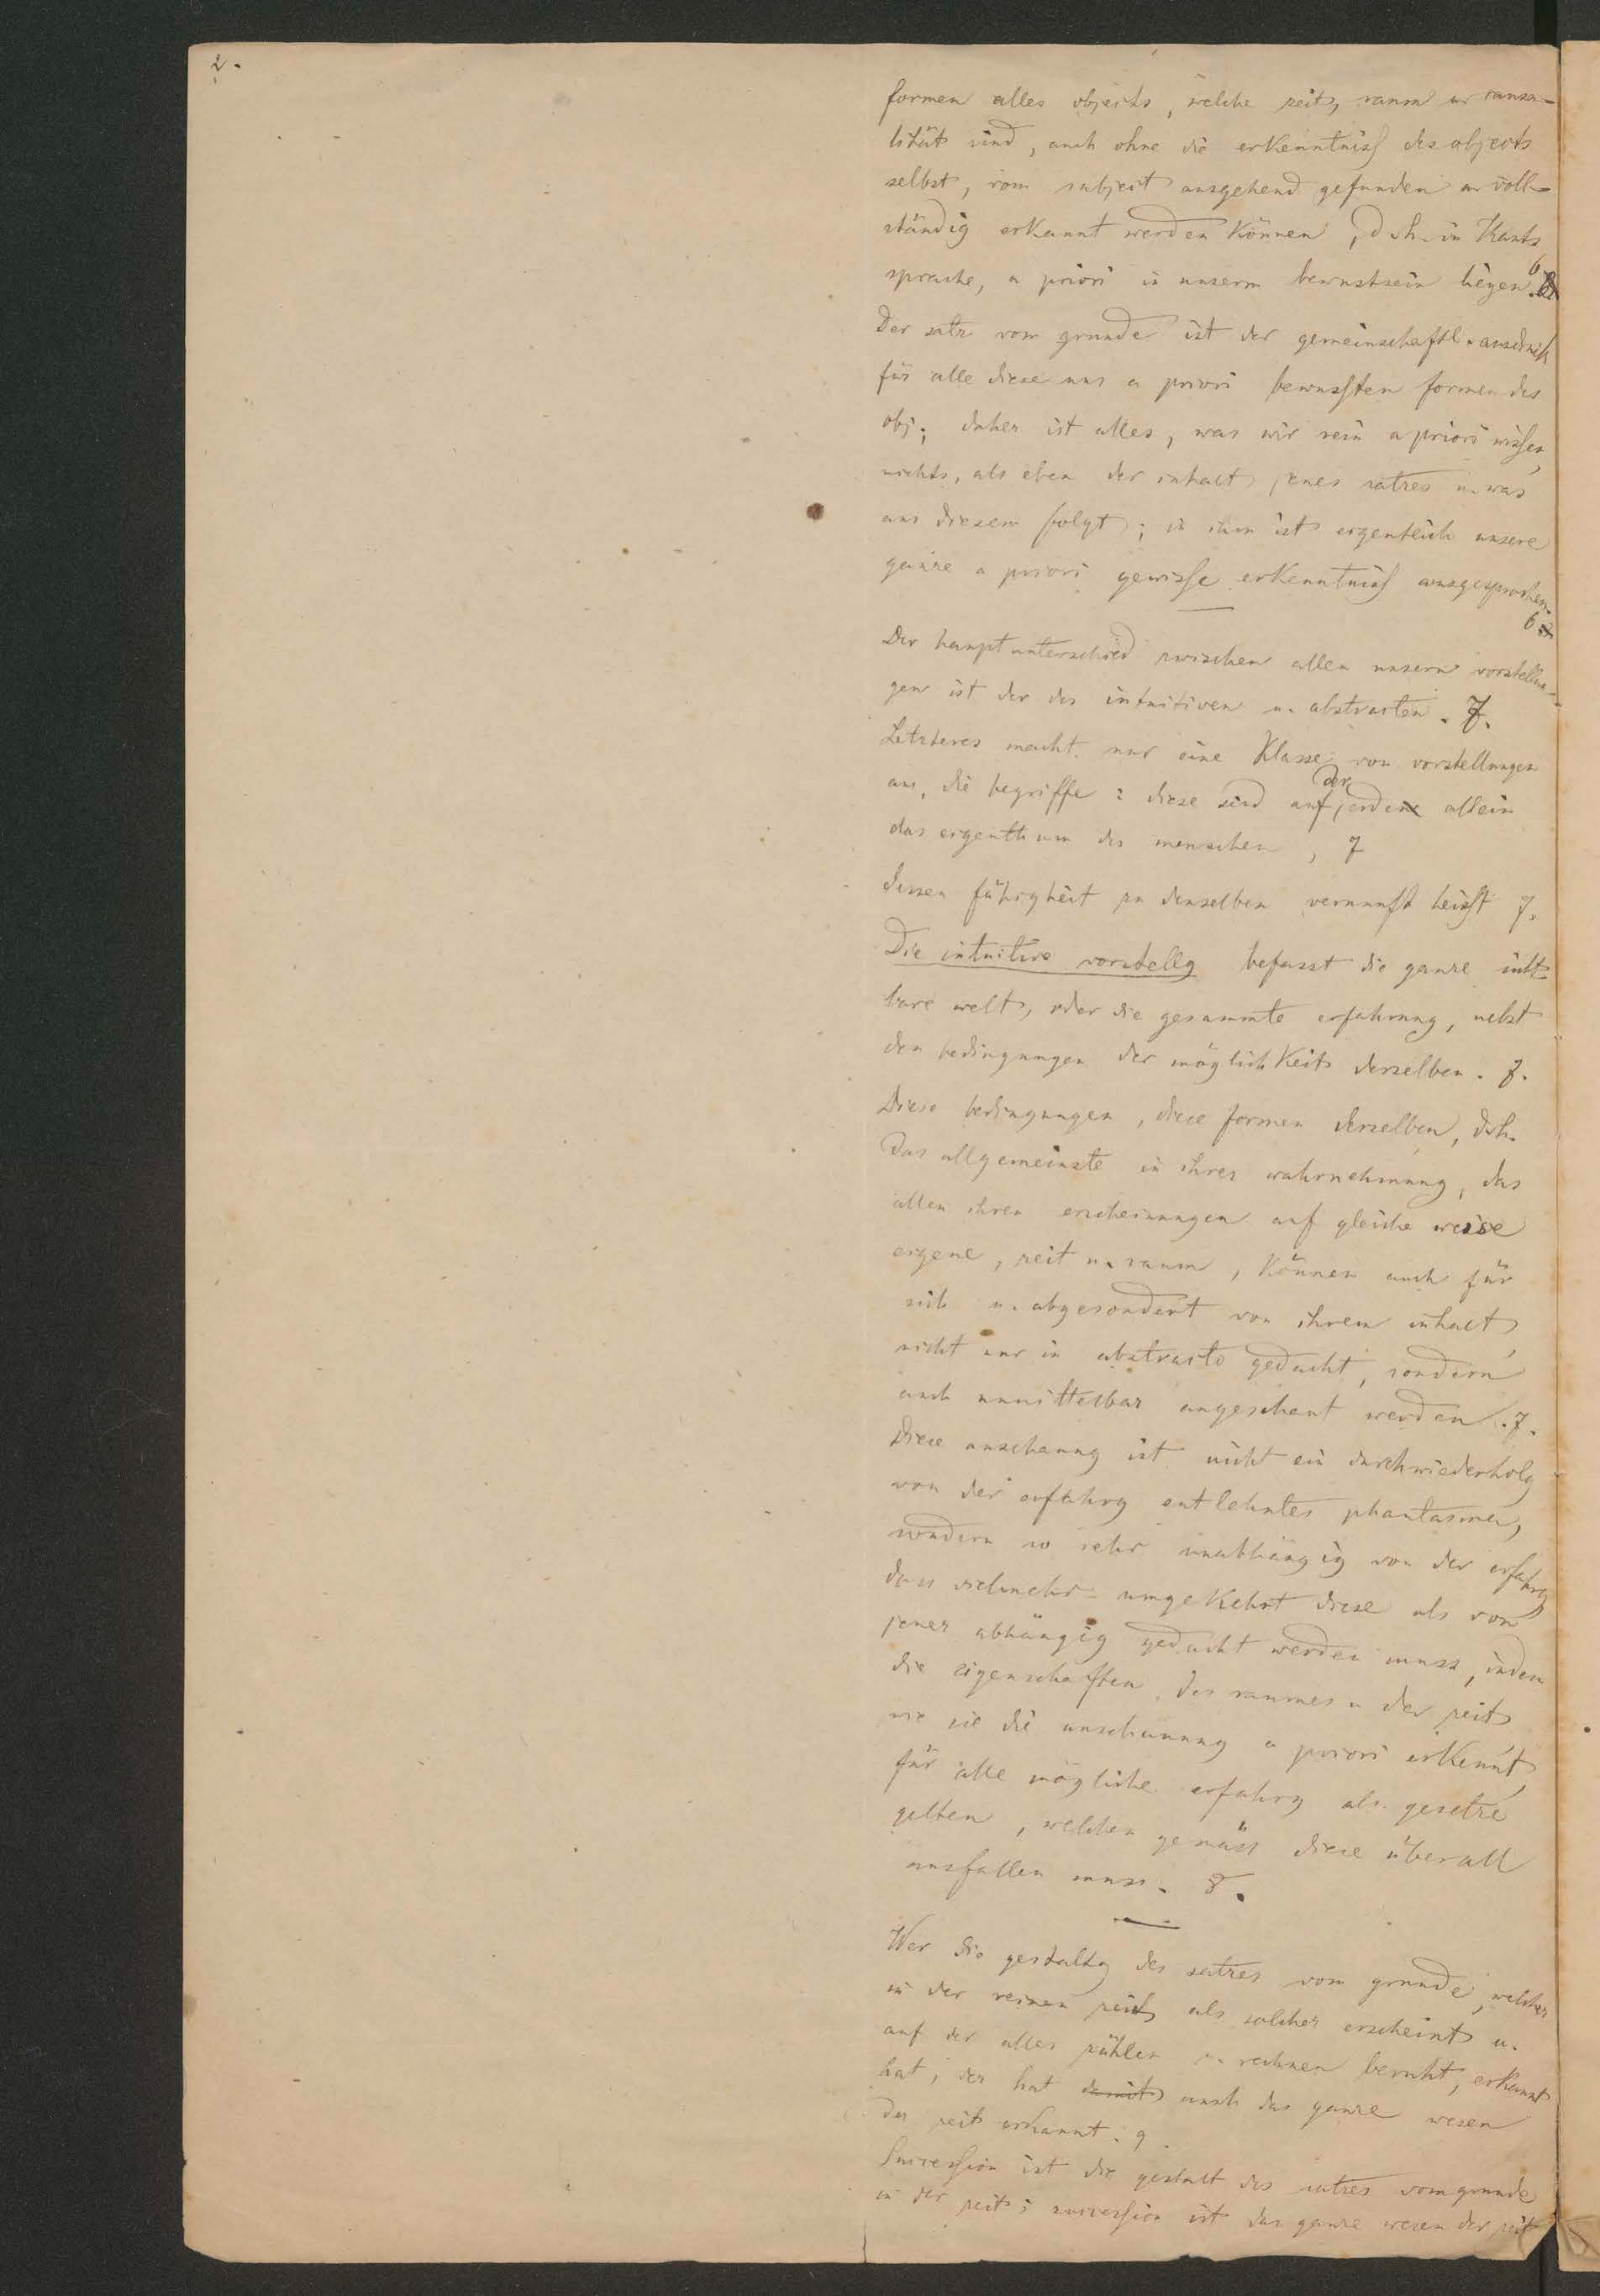 2.
formen alles objects, welche zeit, raum u. causa-
lität sind, auch ohne die erkenntniß des objects
selbst, vom subject ausgehend gefunden u. voll-
ständig erkannt werden können, d. h. in Kants
sprache, a priori in unserm bewustsein liegen. 6
Der satz vom grunde ist der gemeinschaftl. ausdruck
für alle diese uns a priori bewußten formen des
obj; daher ist alles, was wir rein a priori wißen,
nichts, als eben der inhalt jenes satzes u. was
aus diesem folgt; in ihm ist eigentlich unsere
ganze a priori gewiße erkenntniß ausgesprochen.
6.
Der hauptunterschied zwischen allen unsern vorstellun-
gen ist der des intuitiven u. abstracten. 7.
Letzteres macht nur eine Klasse von vorstellungen
aus, die begriffe: diese sind auf der erden allein
das eigenthum des menschen, 7
dessen fähigheit zu denselben vernunft heißt 7.
Die intuitive vorstellg befasst die ganze sicht-
bare welt, oder die gesammte erfahrung, nebst
den bedingungen der möglichKeit derselben. 7.
Diese bedingungen, diese formen derselben, d. h.
das allgemeinste in ihrer wahrnehmung, das
allen ihren erscheinungen auf gleiche weise
eigene, zeit u. raum, können auch für
sich u. abgesondert von ihrem inhalt,
nicht nur in abstracto gedacht, sondern
auch unmittelbar angeschaut werden. 7.
Diese anschaung ist nicht ein durch wiederholg
von der erfahrg entlehntes phantasma,
sondern so sehr unabhängig von der erfahrg
dass vielmehr umgekehrt diese als von
jener abhängig gedacht werden muss, indem
die eigenschaften des raumes u der zeit,
wie sie die anschauung a priori erkennt,
für alle mögliche erfahrg als gesetze
gelten, welchen gemäss diese überall
ausfallen muss. 8.
Wer die gestaltg des satzes vom grunde, welcher
in der reinen zeit als solcher erscheint u.
auf der alles zählen u. rechnen beruht, erkannt
hat, der hat damit auch das ganze wesen
der zeit erkannt. 9.
Succeßion ist die gestalt des satzes vom grunde
in der zeit; succeßion ist das ganze wesen der zeit